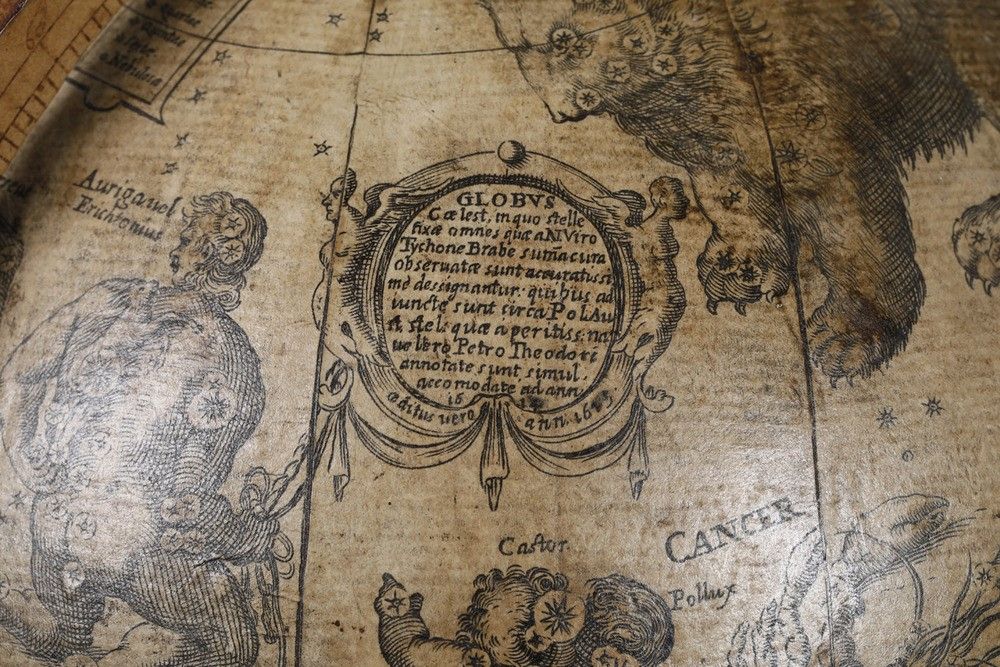 & Nebulosæ
Aurigavel
Erichtonius
GLOBVS
Cælest, in quo stelle
fixæ omnes quæ a N Viro
Tychone Brahe suma cura
observatæ sunt accuratissi
me dessignantur: quibus ad
iuncte sunt circa Pol. Au
st. stel: quæ a peritiss. na
uclero Petro Theodori
annotate sunt simul.
accomodate ad ann
16
æditus vero ann. 16
Castor
CANCER
Pollux